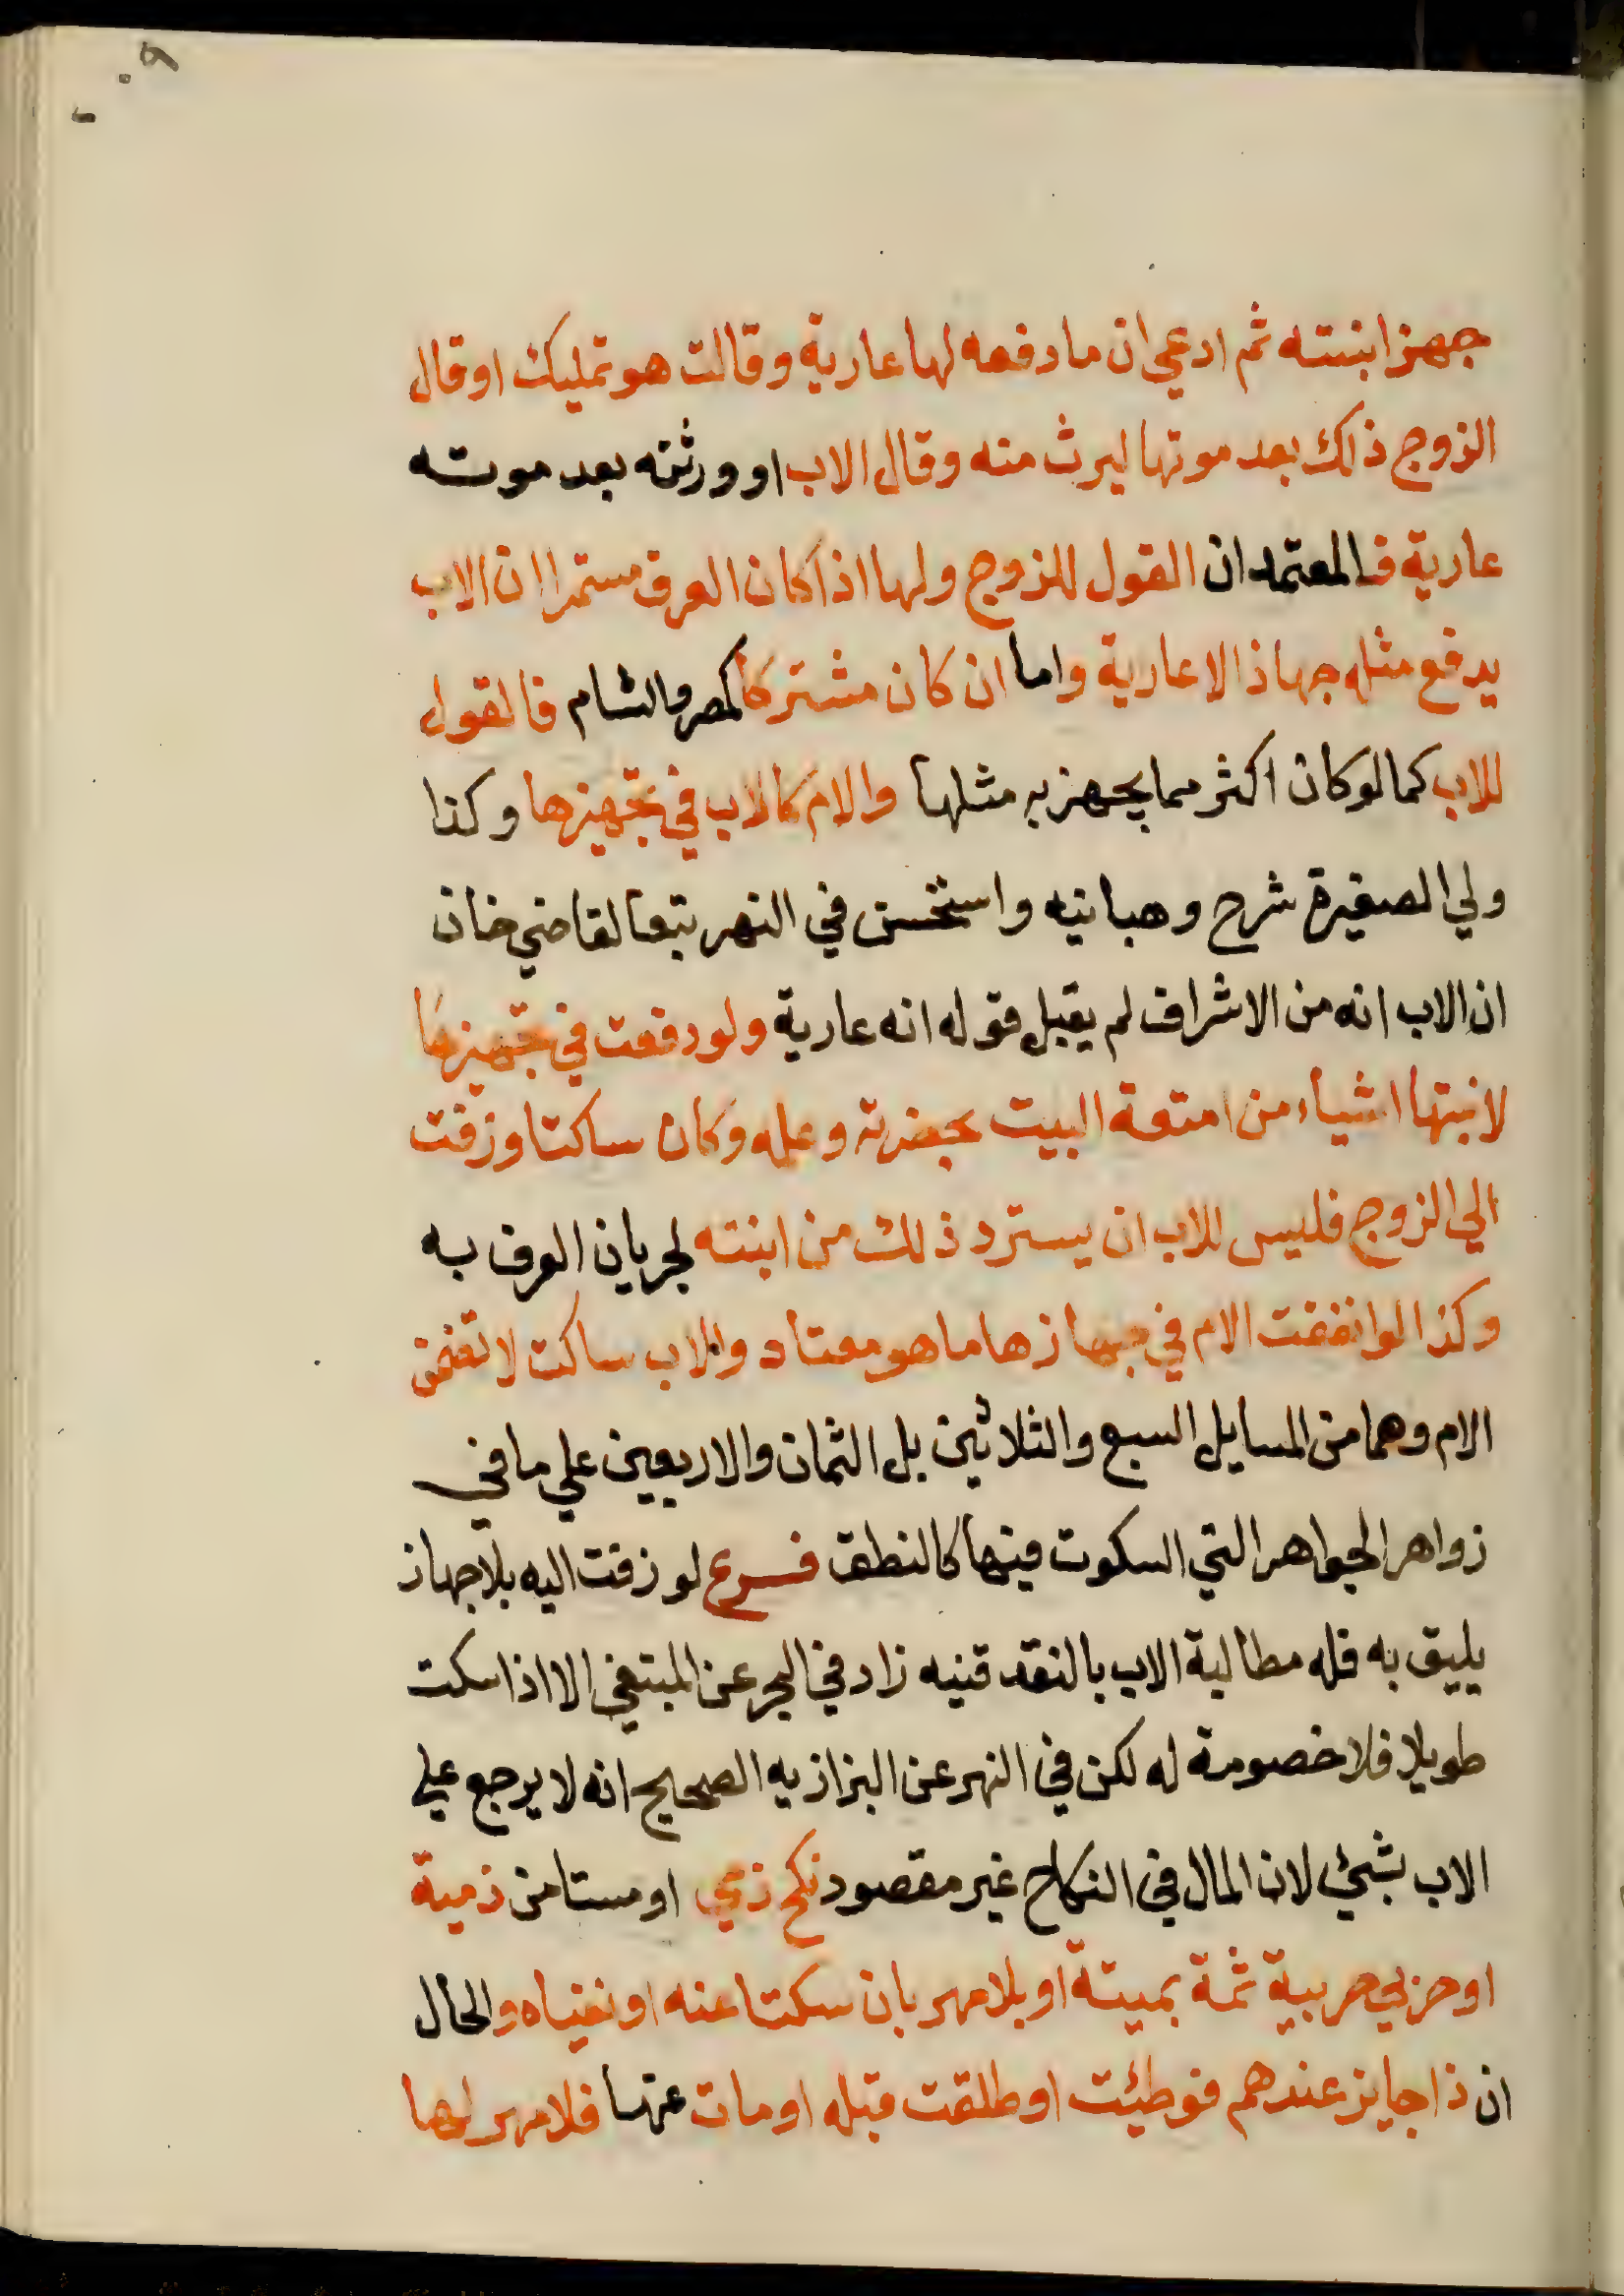 جهز ابنته ثم ادعي ان ما دفعه لها عارية وقالت هو تمليك او قال
الزوج ذلك بعد موتها ليرث منه وقال الاب او ورثته بعد موته
عارية فالمعتمد ان القول للزوج ولها اذا كان العرف مستمرا ان الاب
يدفع مثله جهازا لا عارية واما ان كان مشتركا كمصر والشام فالقول
للاب كما لو كان اكثر مما يجهز به مثلها والام كالاب في تجهيزها وكذا
ولي الصغيرة شرح وهبانيه واستحسن في النهر تبعا لقاضي خان
ان الاب انه من الاشراف لم يقبل قوله انه عارية ولو دفعت في تجهيزها
لابنتها اشياء من امتعة البيت بحضرته وعلمه وكان ساكتا وزفت
الي الزوج فليس للاب ان يسترد ذلك من ابنته لجريان العرف به
وكذا لو انفقت الام في جهازها ما هو معتاد والاب ساكت لا تضمن
الام وهما من المسايل السبع والثلاثين بل الثمان والاربعين علي ما في
زواهر الجواهر التي السكوت فيها كالنطق فرع لو زفت اليه بلا جهاز
يليق به فله مطالبة الاب بالنقد قنيه زاد في البحر عن المبتغي الا اذا سكت
طويلا فلا خصومة له لكن في النهر عن البزازيه الصحيح انه لا يرجع علي
الاب بشئ لان المال في النكاح غير مقصود نكح ذمي او مستامن ذمية
او حربي حربية ثمة بميتة او بلا مهر بان سكتا عنه او نفياه والحال
ان ذا جايز عندهم فوطئت او طلقت قبله او مات عنها فلا مهر لها